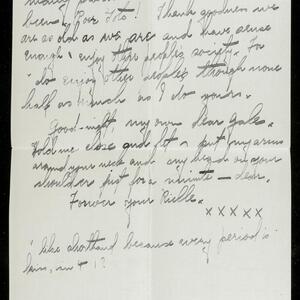 been, "Poor Toto"! Thank goodness we
are as old as we are and have sense
enough to enjoy other people's society. For
I do enjoy other peoples though none
half as much as I do yours.
Good-night, my own dear Gale.
Hold me close and let me put my arms
around your neck and my head on your
shoulder just for a minute – dear.
Forever Your
x x x x x
"like shorthand because every period is